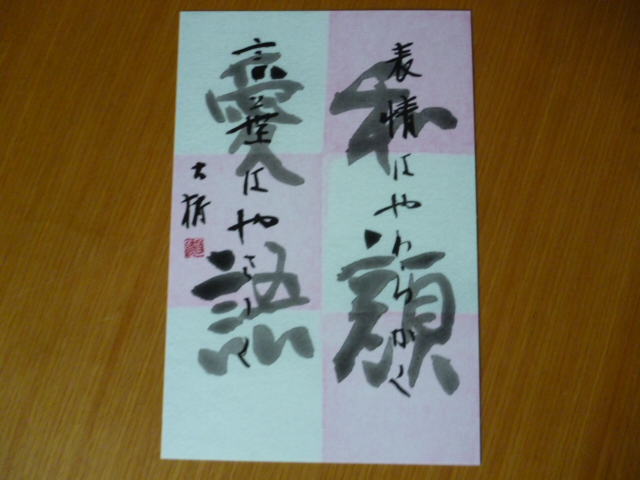 和顔
愛語
表情はやわらかく
言葉はやさしく